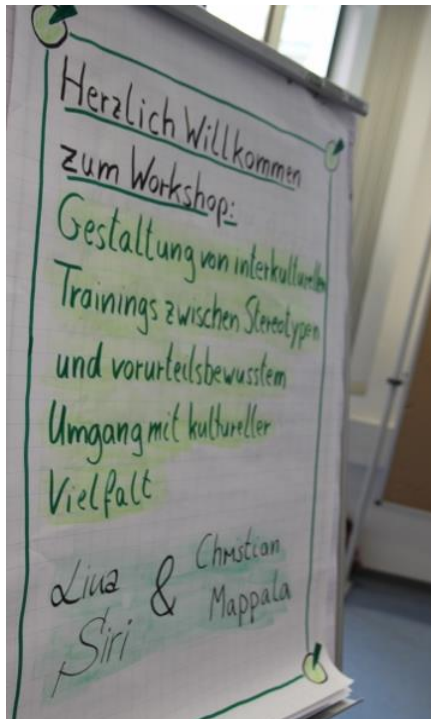 Herzlich Willkommen
zum Workshop:
Gestaltung von interkulturellen
Trainings zwischen Stereotypen
und vorurteilsbewusstem
Umgang mit kultureller
Vielfalt
Lina Siri & Christian Mappala